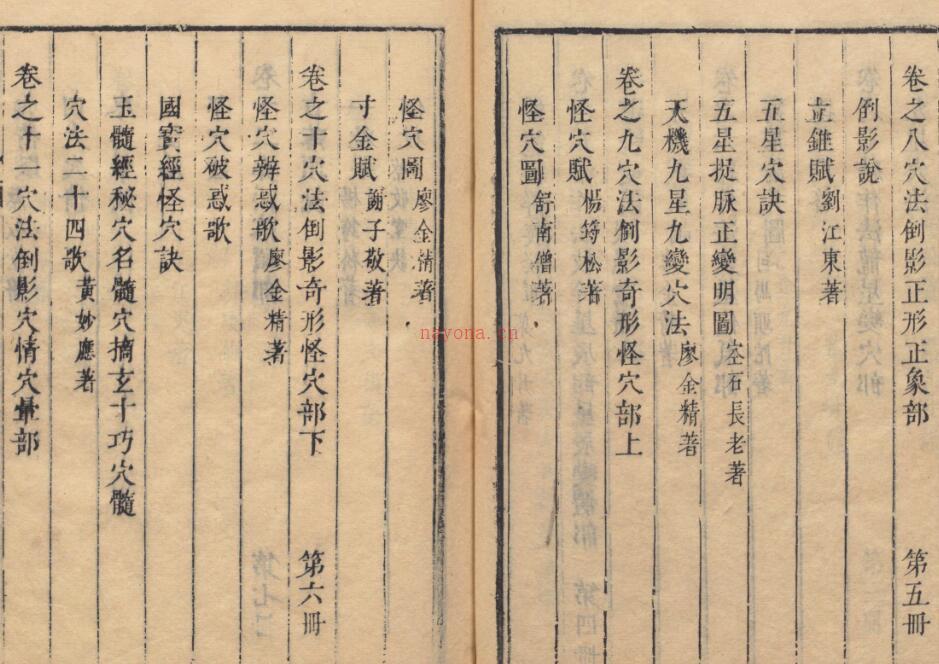 卷之八穴法倒影正形正象部 第五冊
倒影說
立錐賦 劉江東著
五星穴訣
五星捉脉正變明圖 崆石長老著
天機九星九變穴法 廖金精著
卷之九穴法倒影奇形怪穴部上
怪穴賦 楊筠松著
怪穴圖 舒南僧著
怪穴圖 廖金精著
寸金賦 謝子敬著
卷之十穴法倒影奇形怪穴部下 第六冊
怪穴辨惑歌 廖金精著
怪穴破惑歌
國寶經怪穴訣
玉髓經秘穴名髓穴摘玄十巧穴髓
穴法二十四歌 黃妙應著
卷之十一穴法倒影穴情穴暈部
nayona.cn